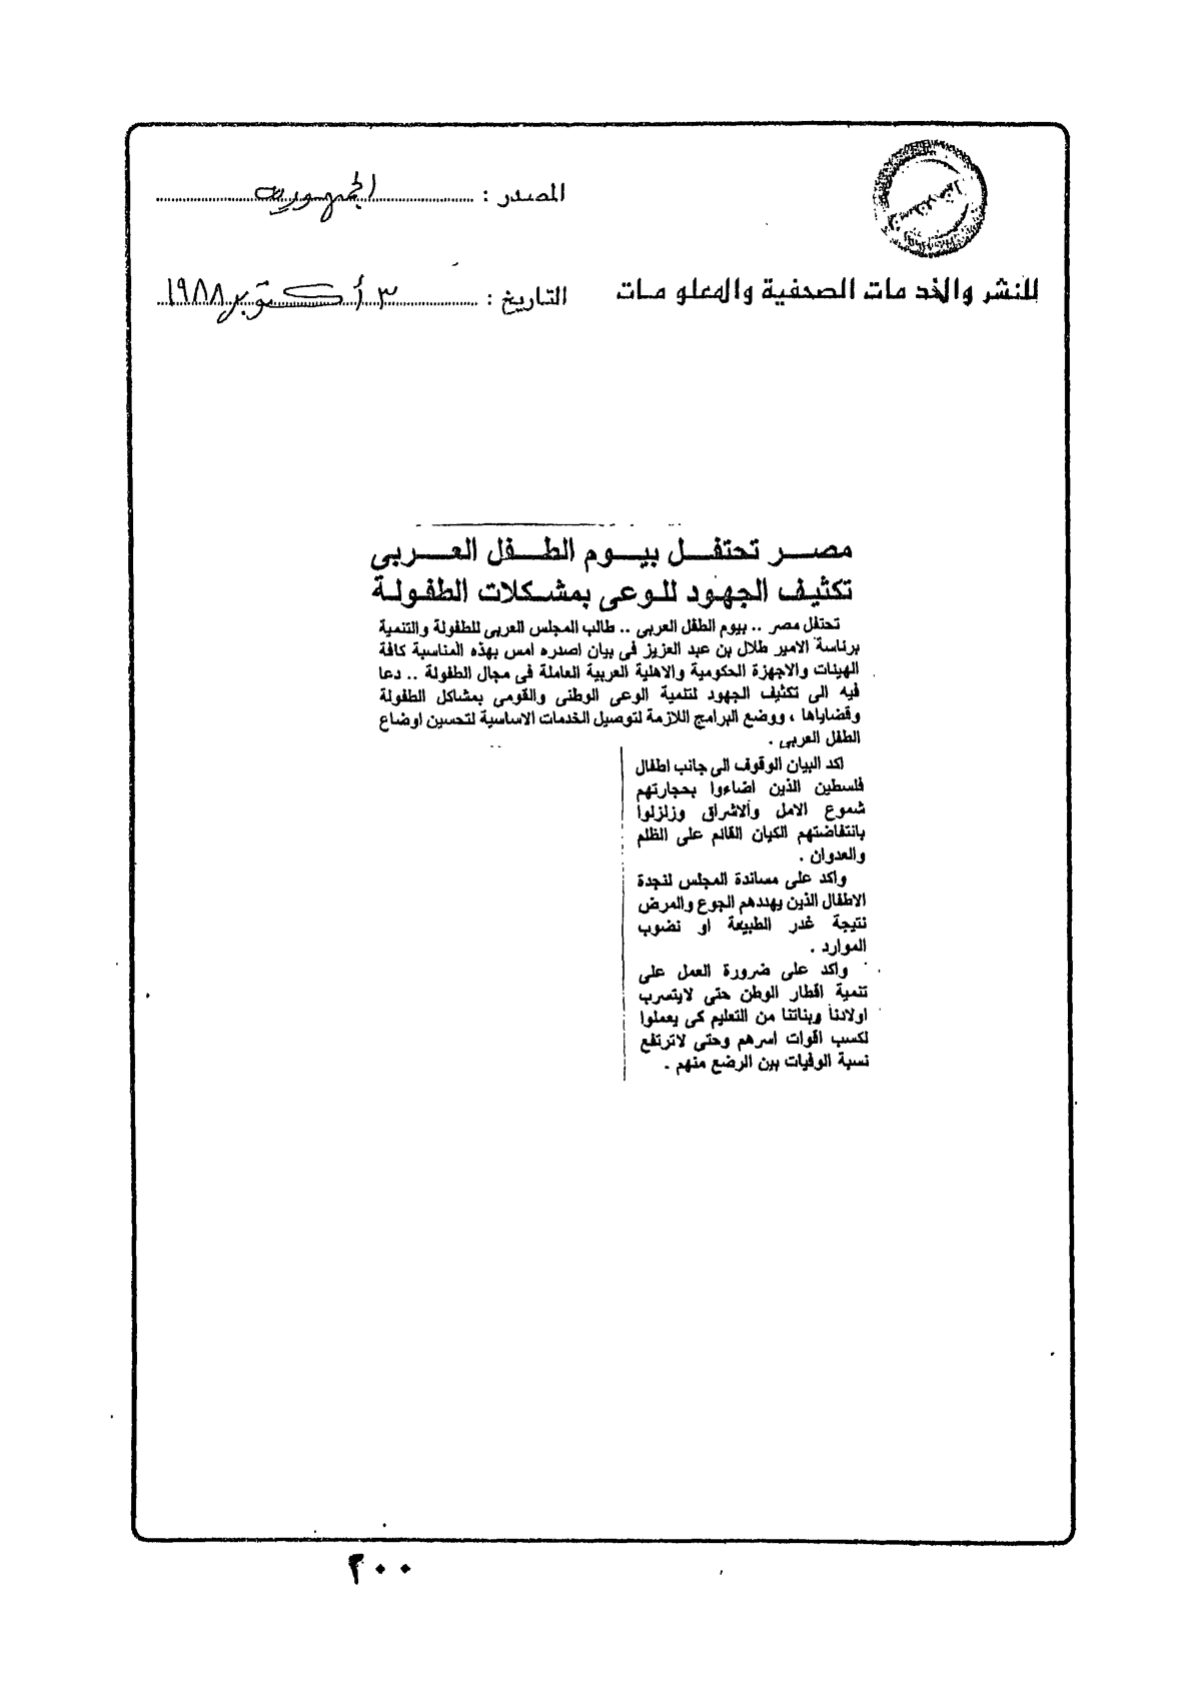 المصدر : الجمهورية
للنشر والخدمات الصحفية والمعلومات
التاريخ : ٣ أكتوبر ١٩٨٨
مصر تحتفل بيوم الطفل العربى
تكثيف الجهود للوعى بمشكلات الطفولة
تحتفل مصر .. بيوم الطفل العربى .. طالب المجلس العربى للطفولة والتنمية
برئاسة الامير طلال بن عبد العزيز فى بيان اصدره امس بهذه المناسبة كافة
الهيئات والاجهزة الحكومية والاهلية العربية العاملة فى مجال الطفولة .. دعا
فيه الى تكثيف الجهود لتنمية الوعى الوطنى والقومى بمشاكل الطفولة
وقضاياها ، ووضع البرامج اللازمة لتوصيل الخدمات الاساسية لتحسين اوضاع
الطفل العربى .
اكد البيان الوقوف الى جانب اطفال
فلسطين الذين اضاءوا بحجارتهم
شموع الامل والاشراق وزلزلوا
بانتفاضتهم الكيان القائم على الظلم
والعدوان .
واكد على مساندة المجلس لنجدة
الاطفال الذين يهددهم الجوع والمرض
نتيجة غدر الطبيعة او نضوب
الموارد .
واكد على ضرورة العمل على
تنمية اقطار الوطن حتى لايتسرب
اولادنا وبناتنا من التعليم كى يعملوا
لكسب اقوات اسرهم وحتى لاترتفع
نسبة الوفيات بين الرضع منهم .
٢٠٠